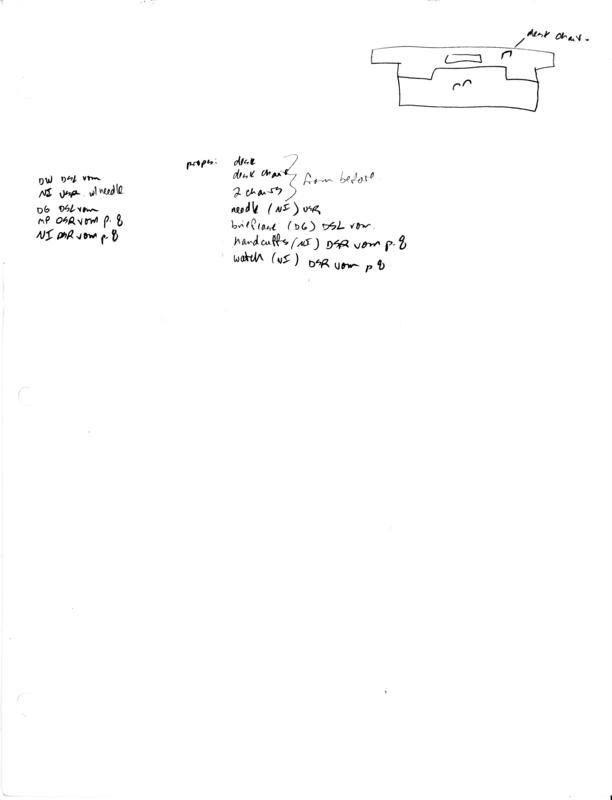 desk chair.
props: desk
desk chair
2 chairs
from before.
needle (NI) USR
briefcase (DG) DSL vom.
handcuffs (NI) DSR vom p. 8
watch (NI) DSR vom p 8
DW DSL vom
NI USR w/needle
DG DSL vom
MP DSR vom p. 8
NI DSR vom p. 8